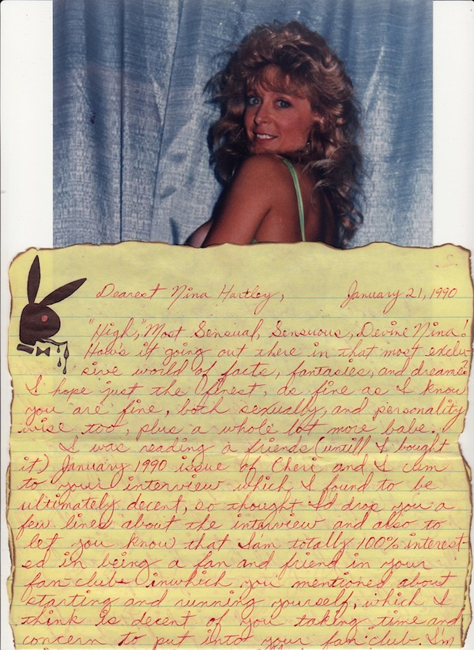 Dearest Nina Hartley, January 21, 1990
"High", Most Sensual, Sensuous, Devine Nina!
Hows it going out there in that most exclu-
sive world of facts, fantasies, and dreams
I hope just the finest, as fine as I know
you are fine, both sexually, and personality
wise too, plus a whole lot more babe.
I was reading a friends (untill I bought
it) January 1990 issue of Cheri and I cum
to your interview which I found to be
ultimately decent, so thought I'd drop you a
few lines about the interview and also to
let you know that I'am totally 100% interest-
ed in being a fan and friend in your
fan club inwhich you mentioned about
starting and running yourself, which I
think is decent of you taking time and
concern to put into your fan club. I'm